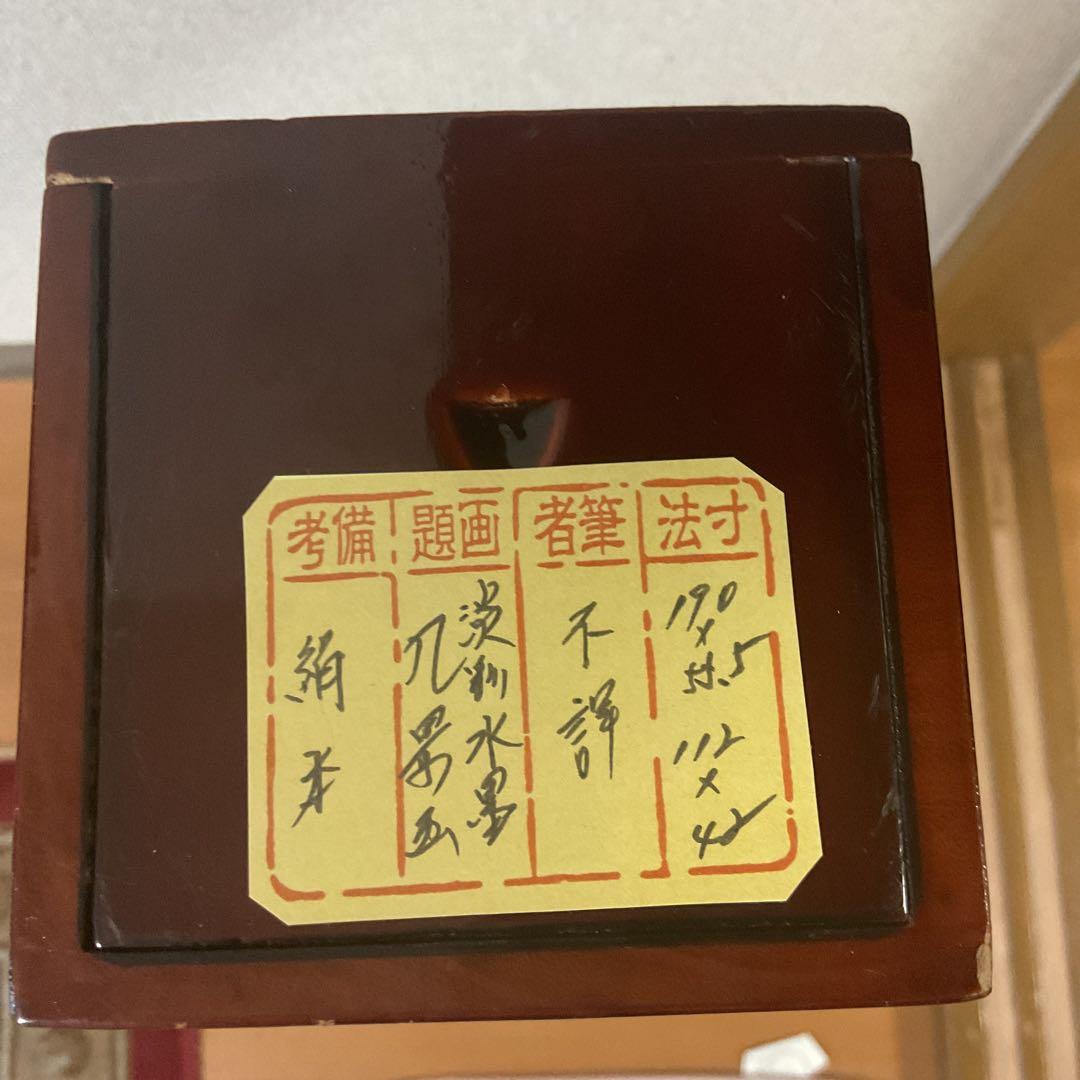 寸法
190
×
54.5
112
×
42
筆者
不詳
画題
淡彩水墨
風景画
備考
絹本